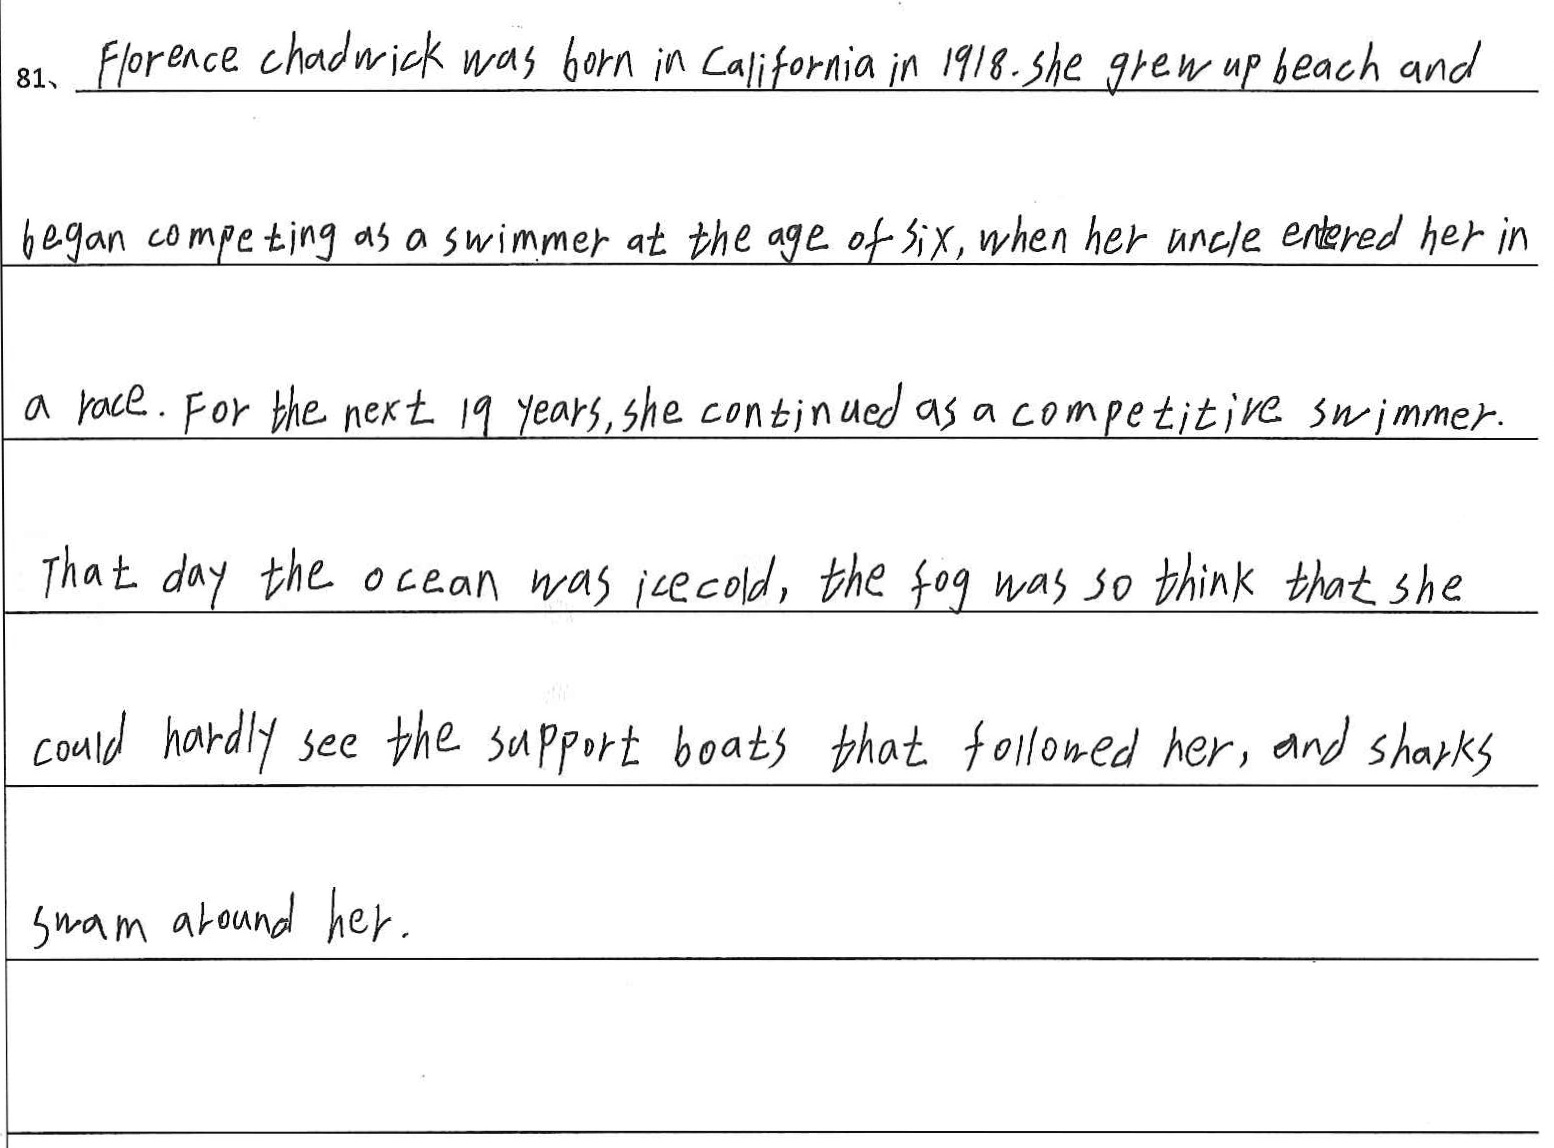 81、 Florence chadwick was born in California in 1918. she grew up beach and
began competing as a swimmer at the age of six, when her uncle entered her in
a race. For the next 19 years, she continued as a competitive swimmer.
That day the ocean was icecold, the fog was so think that she
could hardly see the support boats that followed her, and sharks
swam around her.